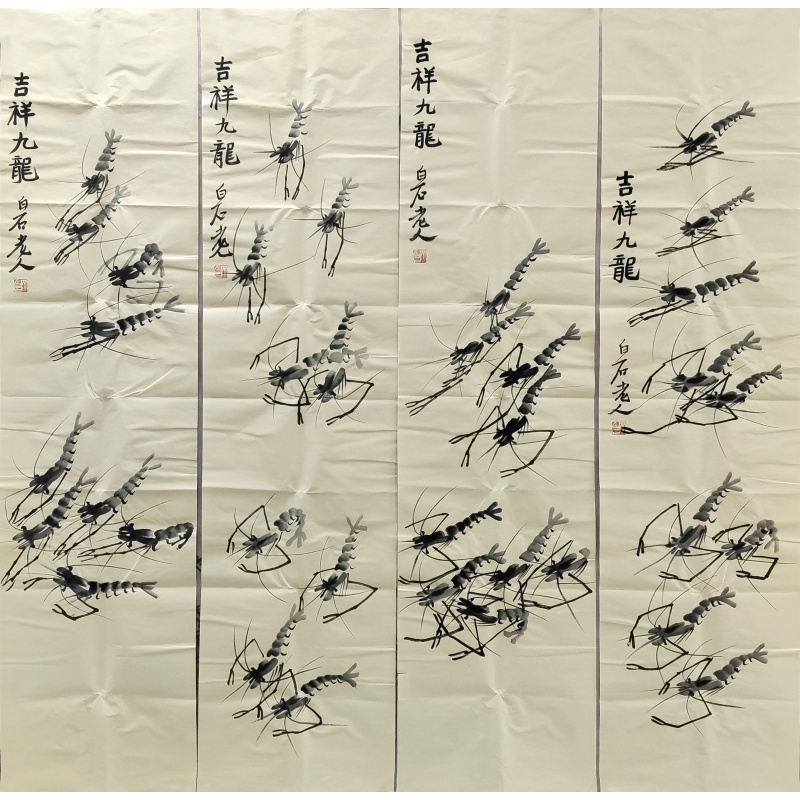 吉祥九龍
白石老人
吉祥九龍
白石老
吉祥九龍
白石老人
吉祥九龍
白石老人